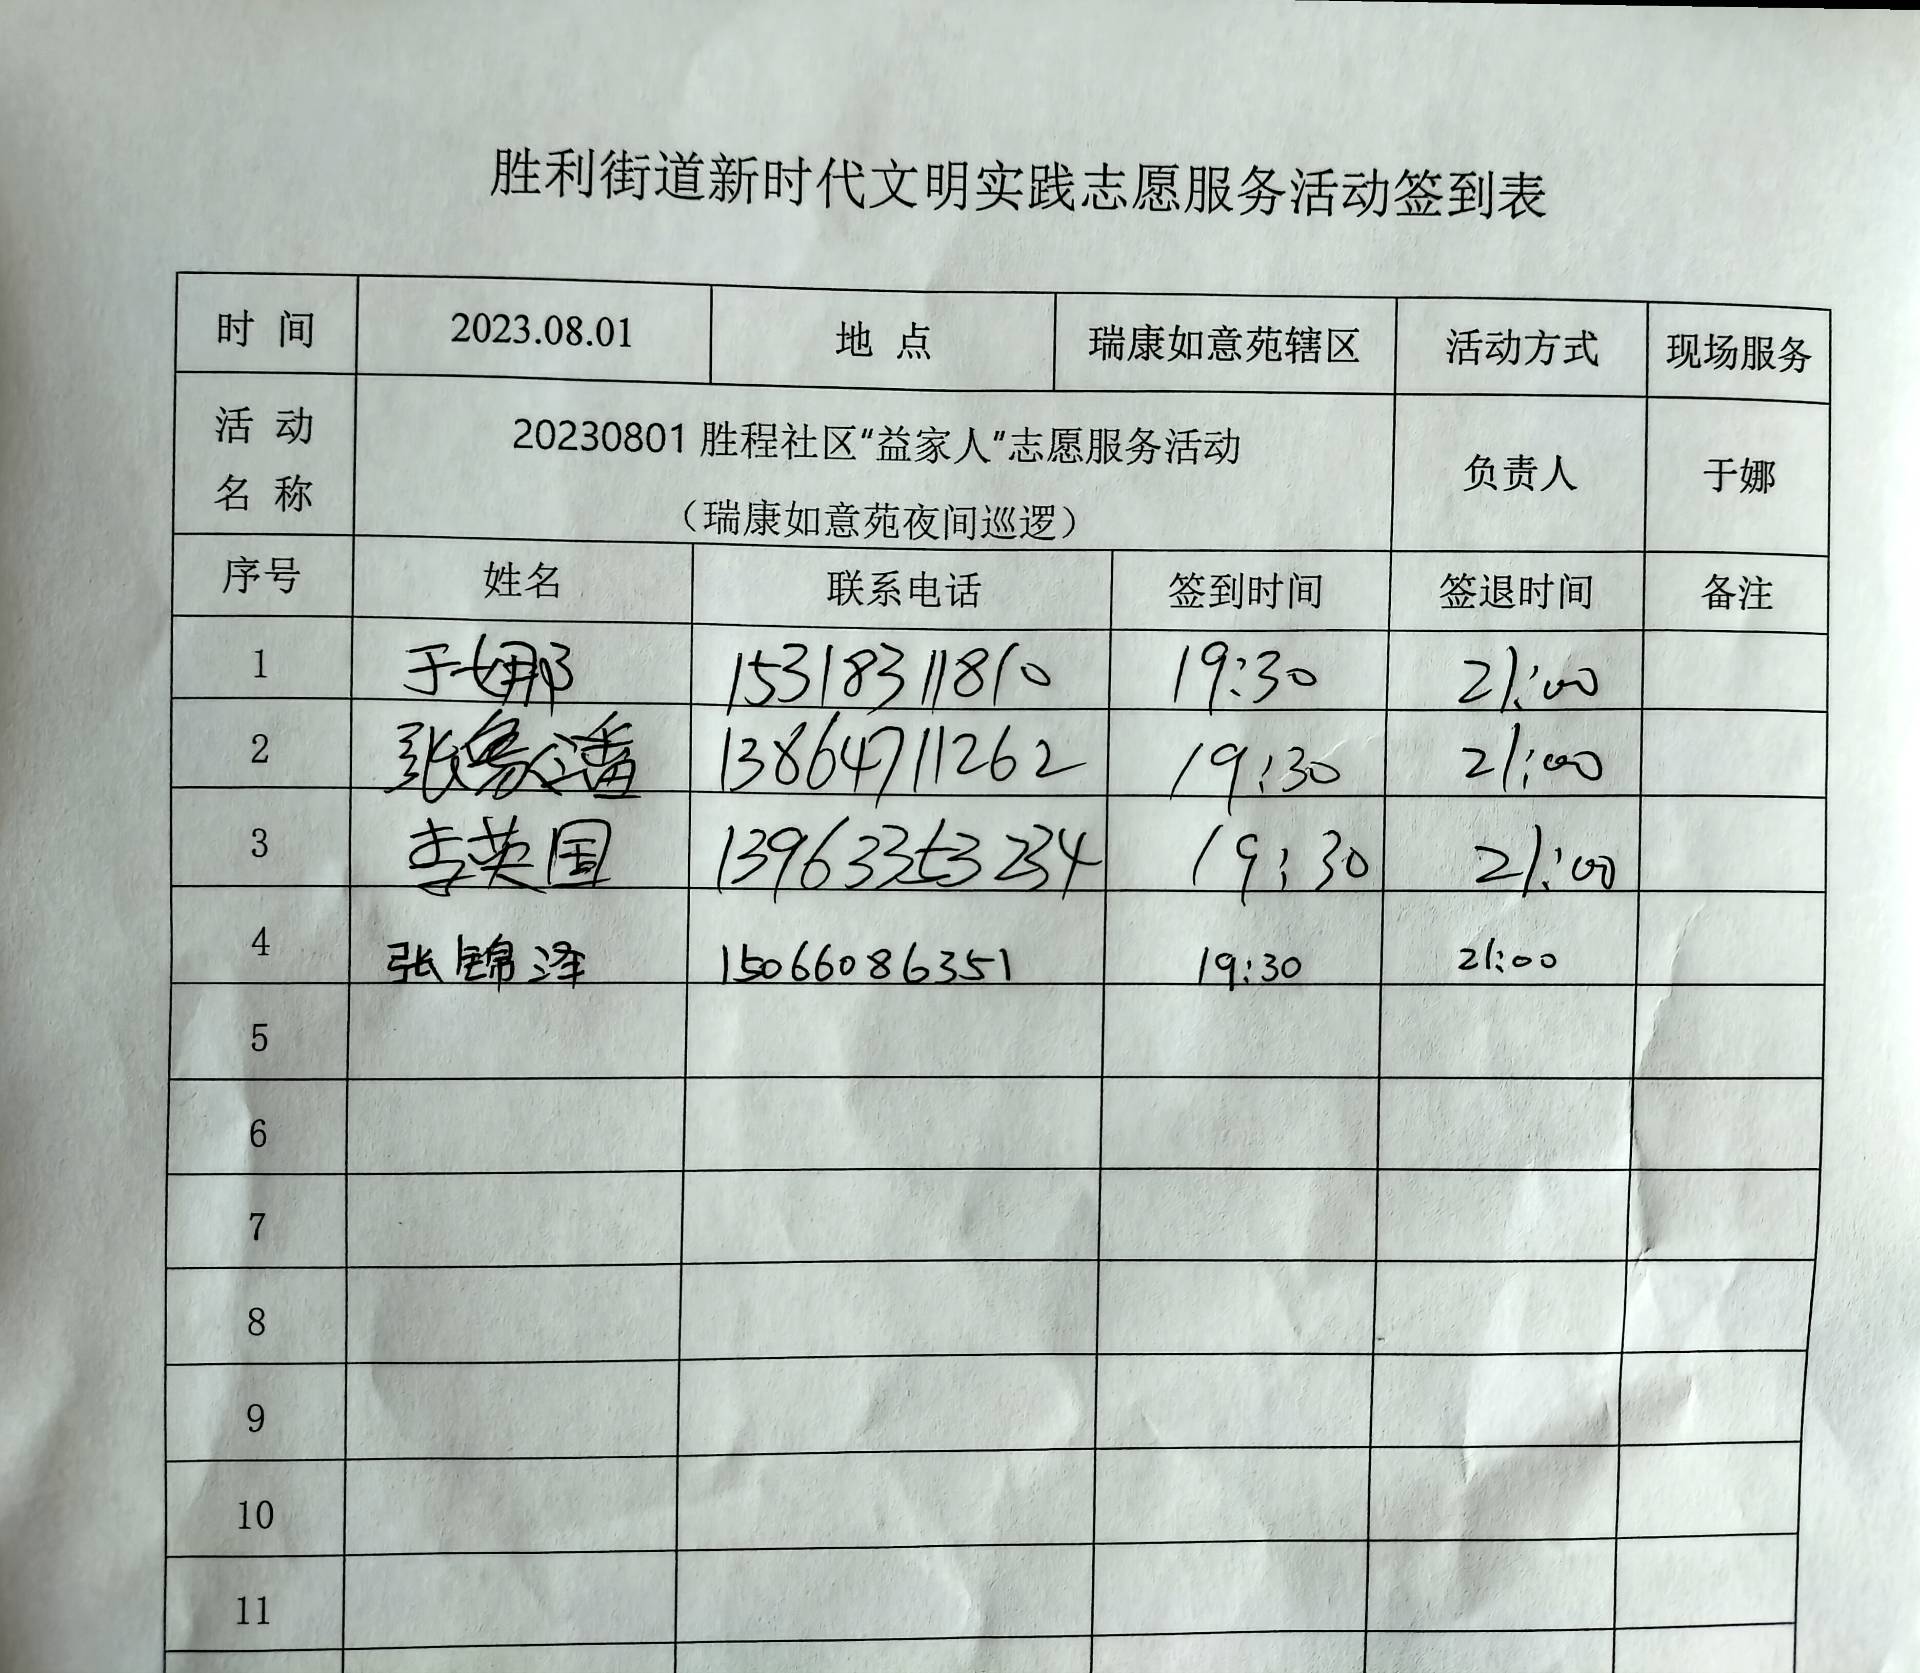 胜利街道新时代文明实践志愿服务活动签到表
时 间 2023.08.01 地 点 瑞康如意苑辖区 活动方式 现场服务
活 动 名 称 20230801 胜程社区“益家人”志愿服务活动 (瑞康如意苑夜间巡逻) 负责人 于娜
序号 姓名 联系电话 签到时间 签退时间 备注
1 于娜 15318311810 19:30 21:00
2 张 13864711262 19:30 21:00
3 李英国 13963353234 19:30 21:00
4 张锦泽 15066086351 19:30 21:00
5
6
7
8
9
10
11